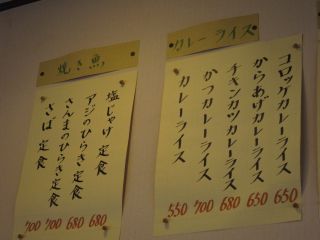 カレーライス
コロッケカレーライス
からあげカレーライス
チキンカツカレーライス
かつカレーライス
カレーライス
550 700 680 650 650
焼き魚
塩じゃけ定食
アジのひらき定食
さんまのひらき定食
さば定食
700 700 680 680